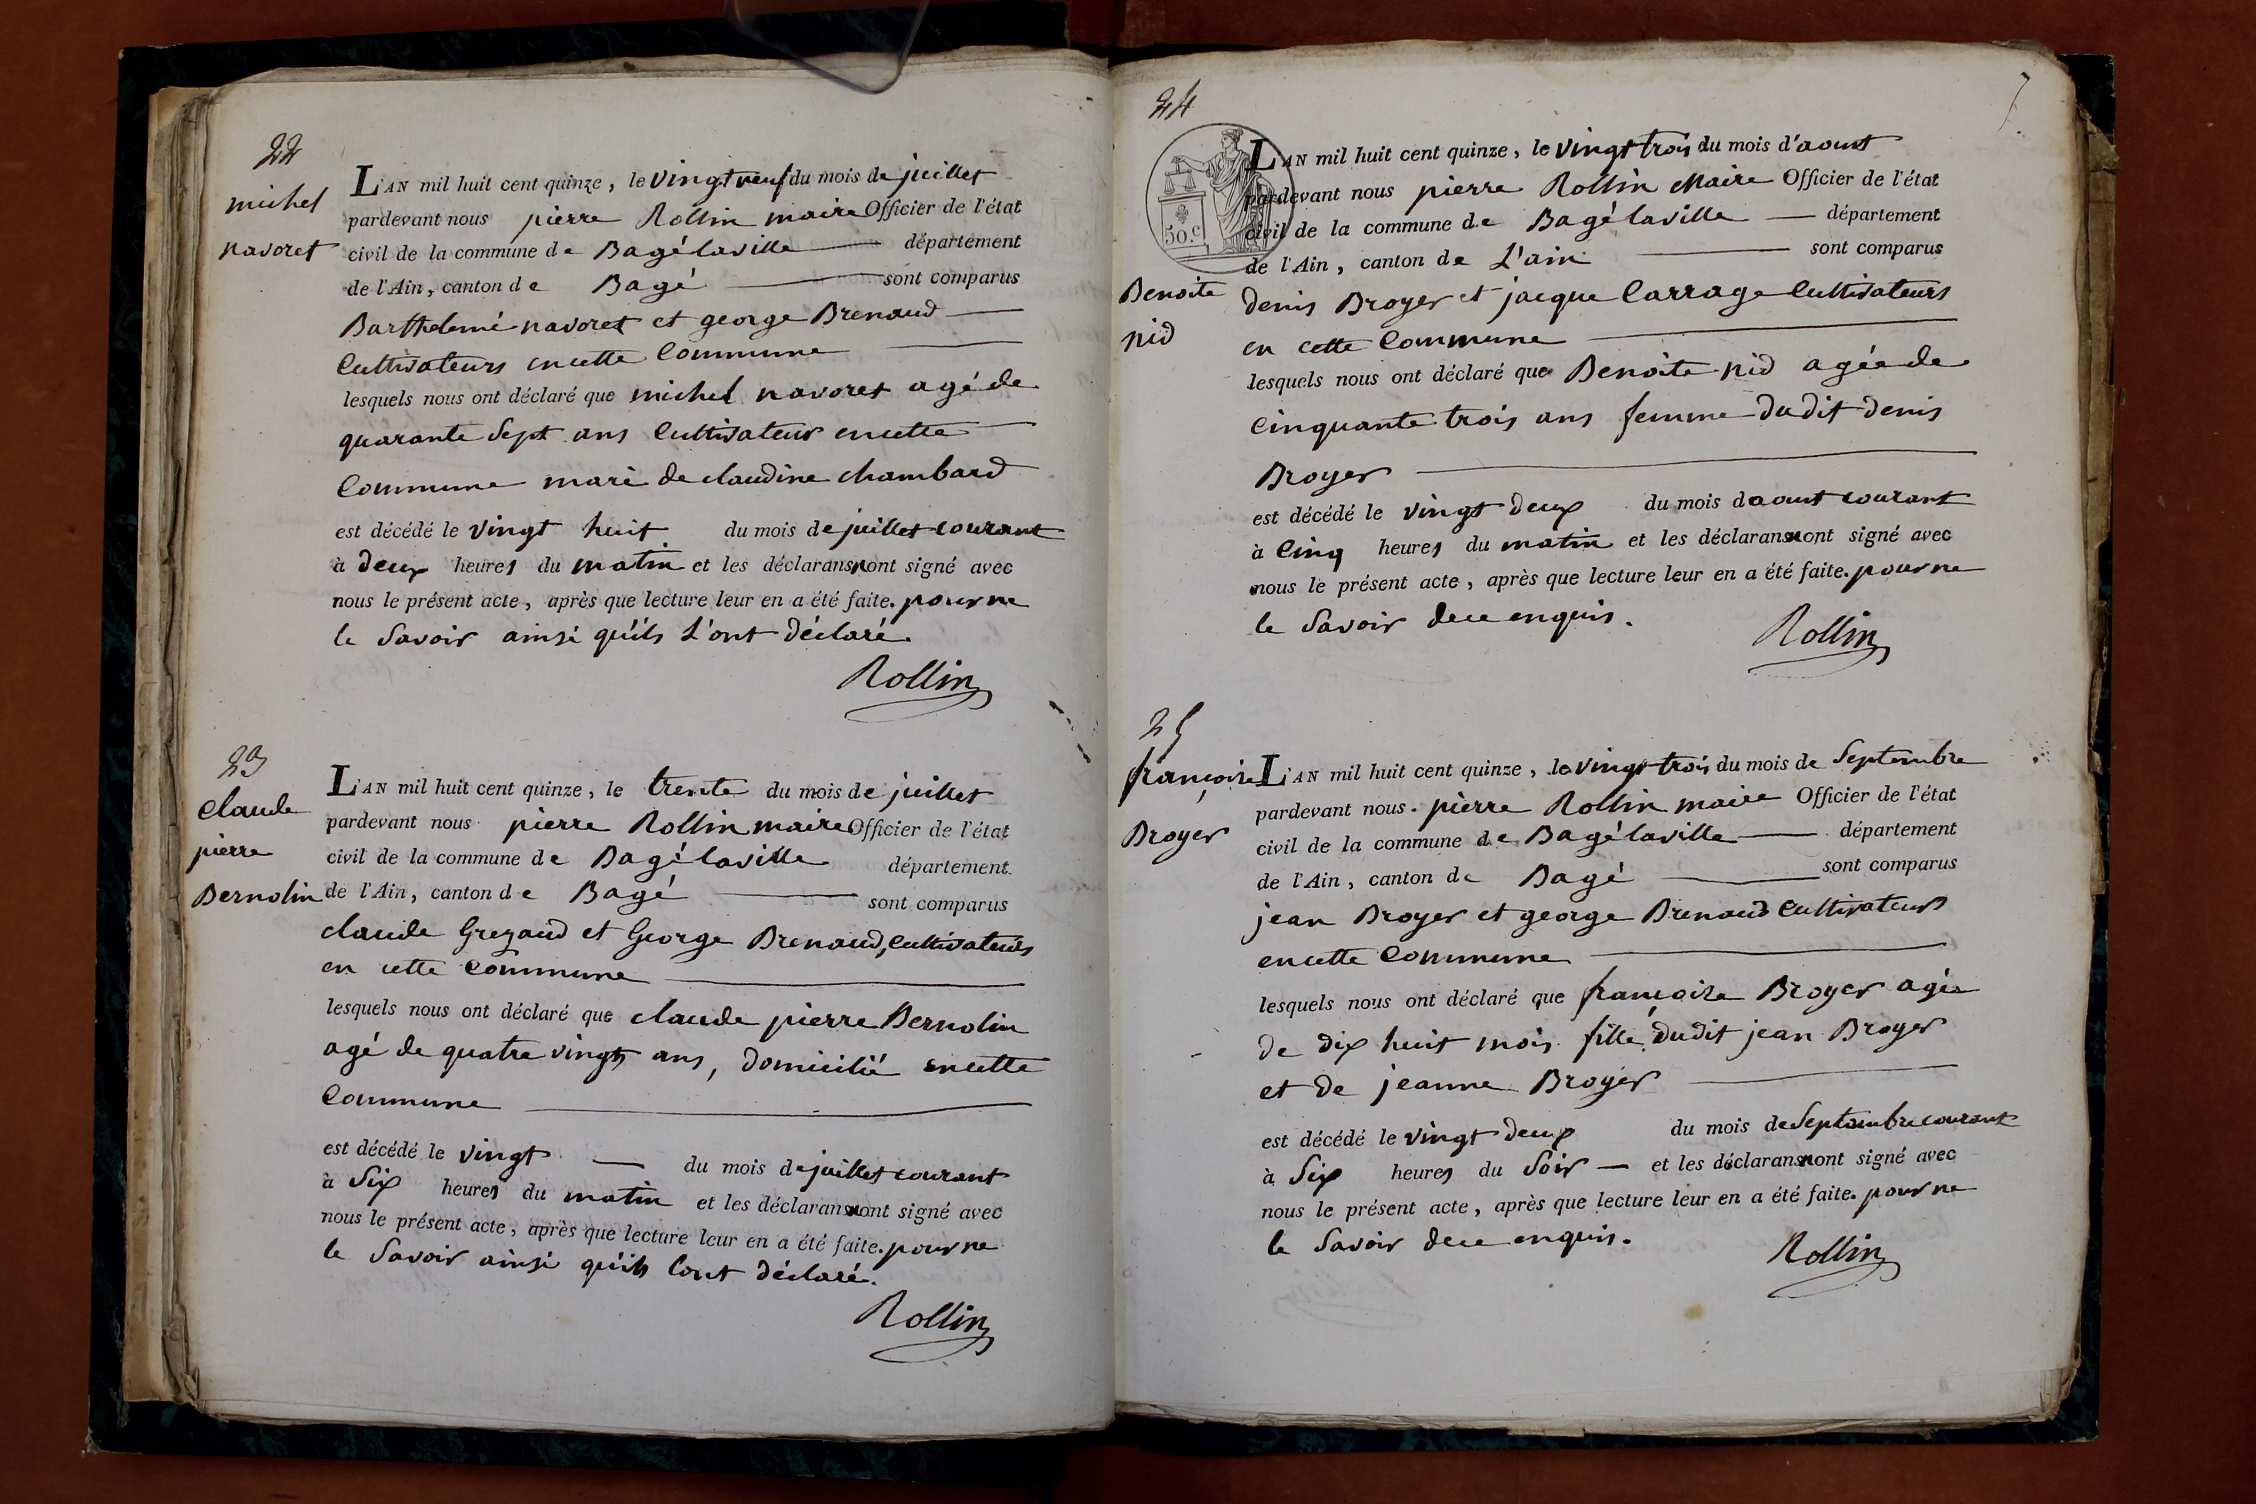 22
michel
navoret
L'AN mil huit cent quinze, le vingt neuf du mois de juillet
pardevant nous pierre Rollin maire Officier de l'état
civil de la commune de Bagélaville département
de l'Ain, canton de Bagé sont comparus
Barthelemi navoret et george Brenaud
Cultivateurs en cette Commune
lesquels nous ont déclaré que michel navoret agé de
quarante Sept ans Cultivateur en cette
Commune mari de claudine chambard
est décédé le vingt huit du mois de juillet courant
à deux heures du matin et les déclarans n'ont signé avec
nous le présent acte, après que lecture leur en a été faite. pour ne
le Savoir ainsi qu'ils L'ont déclaré.
Rollin
23
Claude
pierre
Bernolin
L'AN mil huit cent quinze, le trente du mois de juillet
pardevant nous pierre Rollin maire Officier de l'état
civil de la commune de Bagélaville département
de l'Ain, canton de Bagé sont comparus
claude Grezaud et George Brenaud, Cultivateurs
en cette Commune
lesquels nous ont déclaré que claude pierre Bernolin
agé de quatre vingts ans, domicilié en cette
Commune
est décédé le vingt du mois de juillet courant
à Six heures du matin et les déclarans n'ont signé avec
nous le présent acte, après que lecture leur en a été faite. pour ne
le Savoir ainsi qu'ils l'ont déclaré.
Rollin
7
24
50.c
Benoite
nid
L'AN mil huit cent quinze, le vingt trois du mois d'aoust
pardevant nous pierre Rollin Maire Officier de l'état
civil de la commune de Bagélaville département
de l'Ain, canton de L'ain sont comparus
denis Broyer et jacque Carrage Cultivateurs
en cette Commune
lesquels nous ont déclaré que Benoite nid agée de
Cinquante trois ans femme dudit denis
Broyer
est décédé le vingt deux du mois d'aoust courant
à Cinq heures du matin et les déclarans n'ont signé avec
nous le présent acte, après que lecture leur en a été faite. pour ne
le Savoir de ce enquis.
Rollin
25
françoise
Broyer
L'AN mil huit cent quinze, le vingt trois du mois de Septembre
pardevant nous. pierre Rollin maire Officier de l'état
civil de la commune de Bagélaville département
de l'Ain, canton de Bagé sont comparus
jean Broyer et george Brenaud Cultivateurs
en cette Commune
lesquels nous ont déclaré que françoise Broyer agée
de dix huit mois fille dudit jean Broyer
et de jeanne Broyer
est décédé le vingt deux du mois de Septembre courant
à Six heures du Soir et les déclarans n'ont signé avec
nous le présent acte, après que lecture leur en a été faite. pour ne
le Savoir de ce enquis.
Rollin